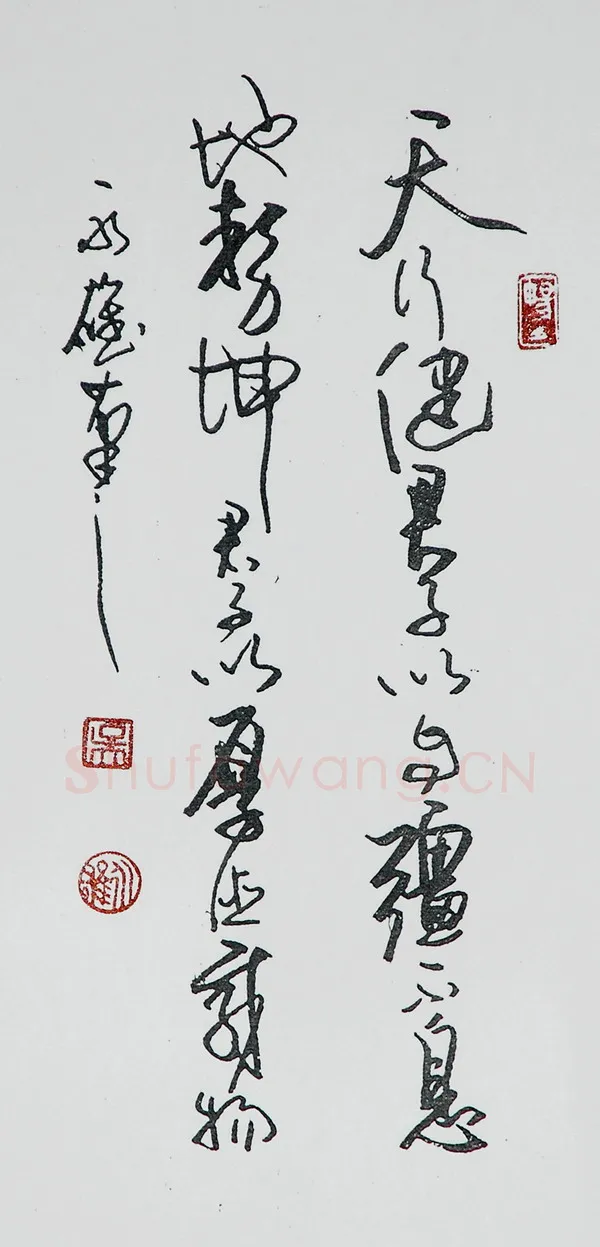 天行健君子以自彊不息
地勢坤君子以厚德載物
Shufawang.CN